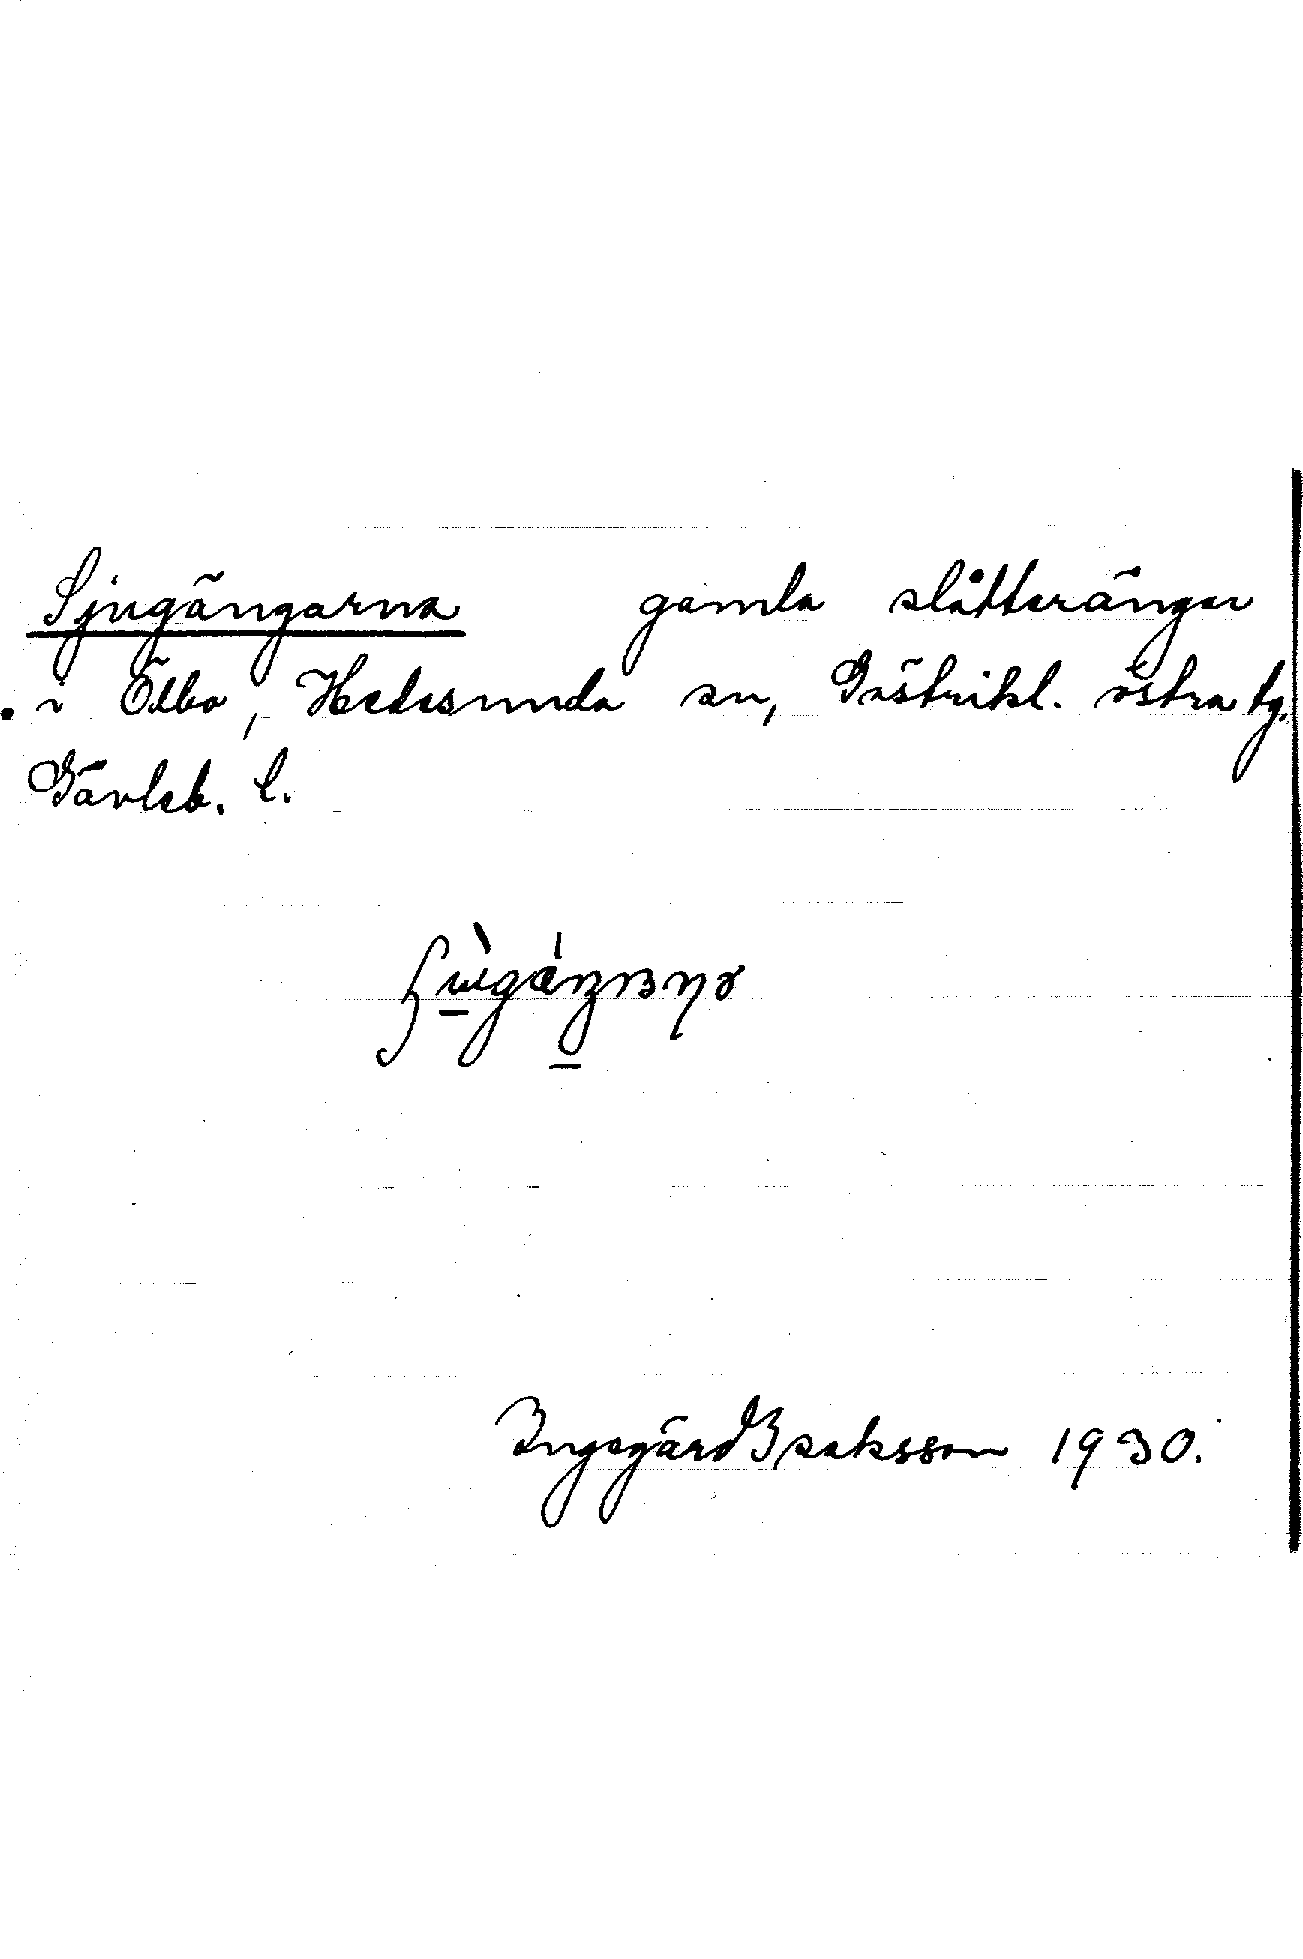 Sjugängarna gamla slåtterängar
i Ölbo, Hedesunda sn, Gästrikl. östra tg.
Gävleb. l.
Ingegärd Isaksson 1930.